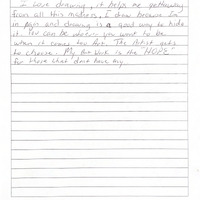 I Love drawing, it helps me getaway
from all this madness, I draw because Im
in pain and drawing is a good way to hide
it. You can be whatever you want to be
when it comes too Art. The Artist gets
to choose. My Art Work is the "HOPE"
for those that don't have any.